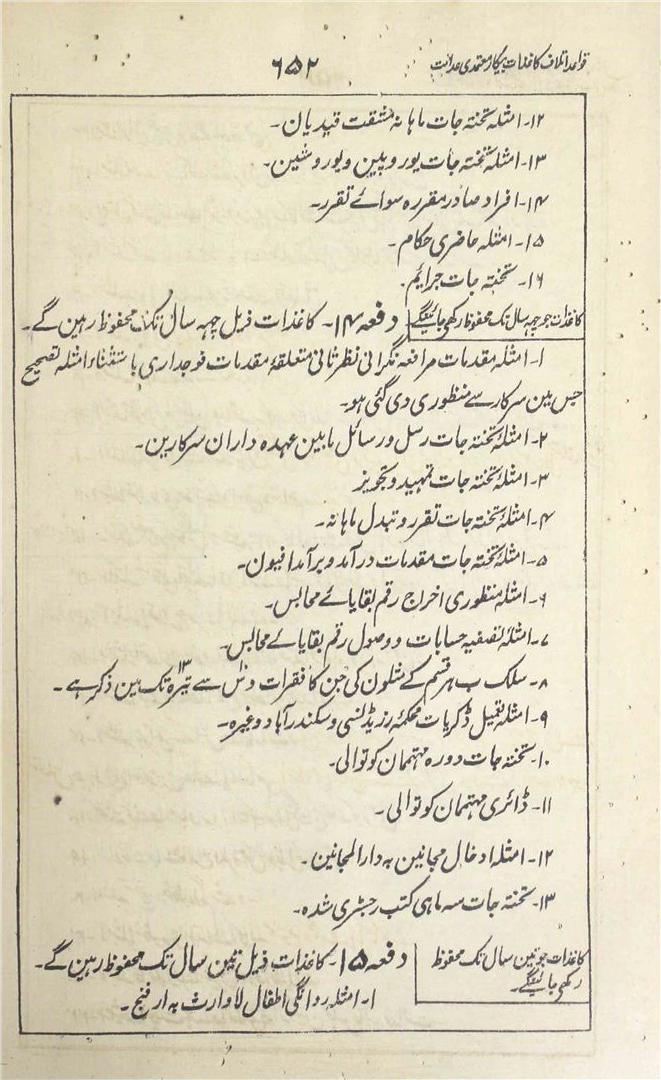 قواعد اتلاف کاغذات بیکار معتمدی عدالت
۶۵۲
۱۲۔ امثلہ تختہ جات ماہانہ مشقت قیدیان۔
۱۳۔ امثلہ تختہ جات یوروپین ویوروشین۔
۱۴۔ افراد صادر مقررہ سوائے تقرر۔
۱۵۔ امثلہ حاضری حکام۔
۱۶۔ تختہ جات جرایم۔
کاغذات جو چہہ سال تک محفوظ رکھی جائینگے
دفعہ ۱۴۔ کاغذات ذیل چہہ سال تک محفوظ رہین گے۔
۱۔ امثلہ مقدمات مرافعہ نگرانی نظر ثانی متعلقہ مقدمات فوجداری باستثناء امثلہ تصحیح
جس مین سرکار سے منظوری دی گئی ہو۔
۲۔ امثلہ تختہ جات رسل ورسائل مابین عہدہ داران سرکارین۔
۳۔ امثلہ تختہ جات تمہید وتجویز
۴۔ امثلہ تختہ جات تقرر وتبدل ماہانہ۔
۵۔ امثلہ تختہ جات مقدمات درآمد وبرآمد افیون۔
۶۔ امثلہ منظوری اخراج رقم بقایائے محالس۔
۷۔ امثلہ تصفیہ حسابات ووصول رقم بقایائے محالس۔
۸۔ سلک ب ہر قسم کے مثلون کی جن کا فقرات دس سے تیرہ ۱۳ تک مین ذکر ہے۔
۹۔ امثلہ تعمیل ڈکریات محکمہ رزیڈنسی وسکندرآباد وغیرہ۔
۱۰۔ تختہ جات دورہ مہتمان کوتوالی۔
۱۱۔ ڈائری مہتمان کوتوالی۔
۱۲۔ امثلہ ادخال مجانین بہ دار المجانین۔
۱۳۔ تختہ جات سہ ماہی کتب رجسٹری شدہ۔
کاغذات جو تین سال تک محفوظ
رکھی جائینگے۔
دفعہ ۱۵۔ کاغذات ذیل تین سال تک محفوظ رہین گے۔
۱۔ امثلہ روانگی اطفال لاوارث بہ ارفنج۔